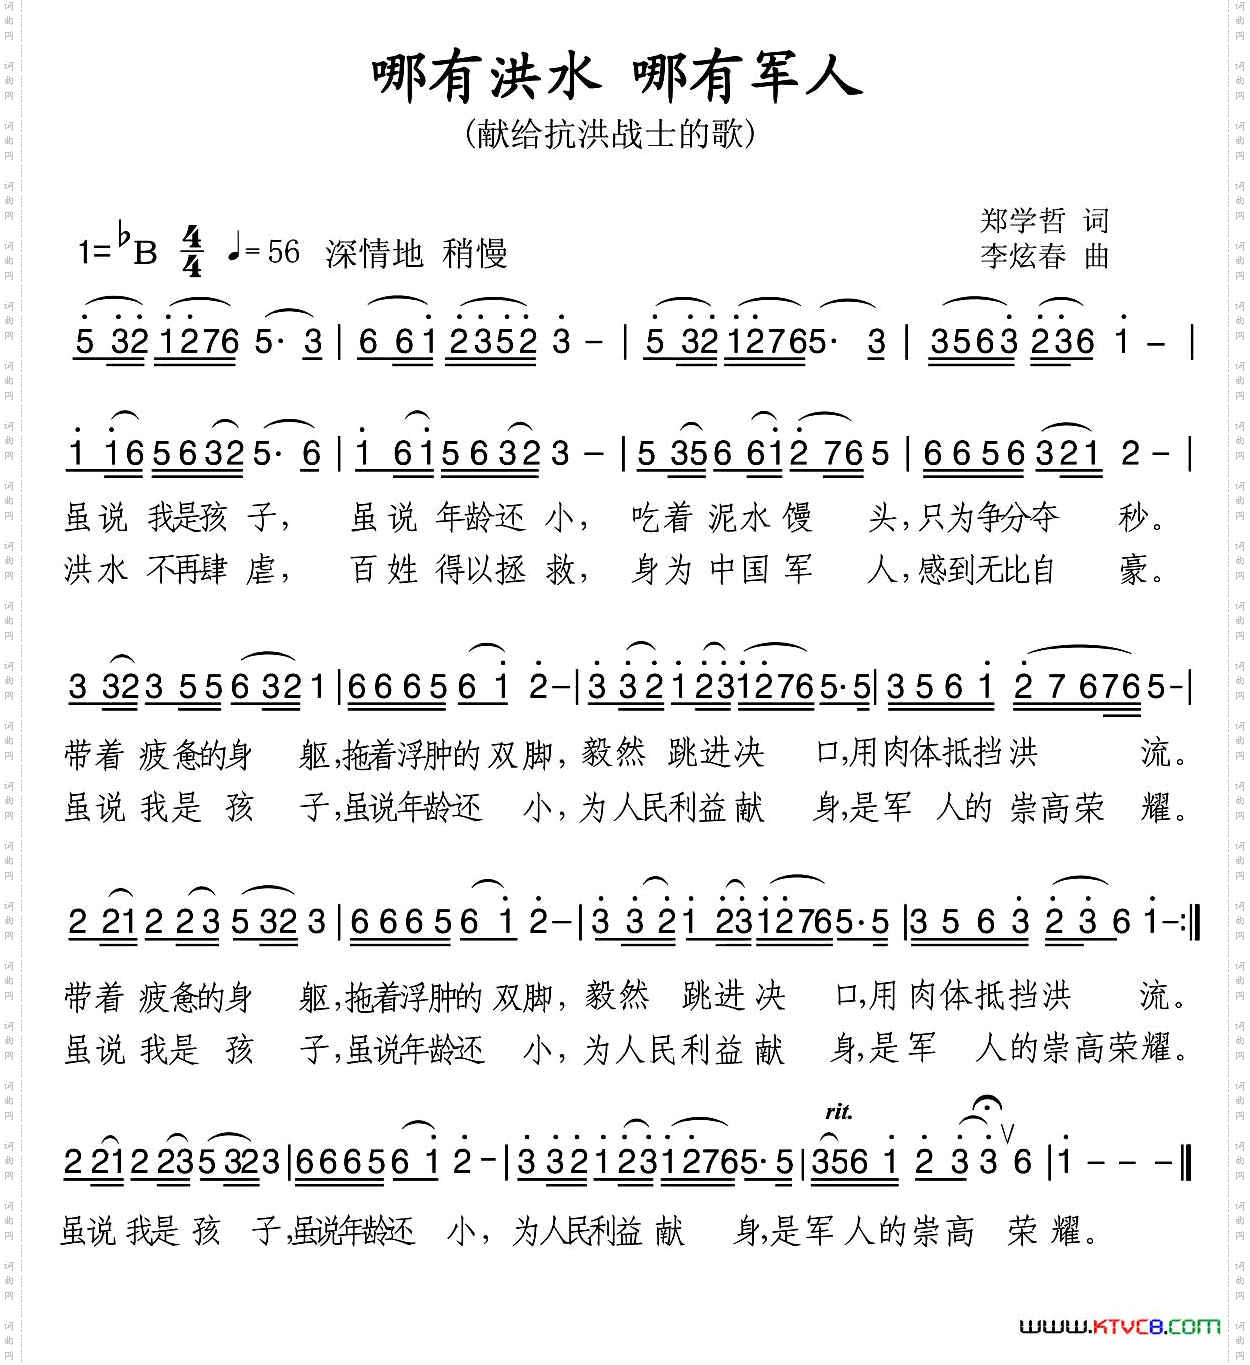 哪有洪水 哪有军人
(献给抗洪战士的歌)
郑学哲 词
1=♭B 4/4 ♩=56 深情地 稍慢
李炫春 曲
5 32 1276 5· 3 | 6 61 2352 3 – | 5 32 1276 5· 3 | 3563 236 1 – |
1 16 5632 5· 6 | 1 61 5632 3 – | 5 356 61 2 765 | 6656 321 2 – |
虽说 我是孩 子， 虽说 年龄还 小， 吃着 泥水馒 头，只为争分夺 秒。
洪水 不再肆 虐， 百姓 得以拯 救， 身为 中国军 人，感到无比自 豪。
3 32 3 55 6 32 1 | 6665 6 1 2 – | 3 32 1 23 1276 5· 5 | 3561 2 7 676 5 – |
带着 疲惫的身 躯，拖着浮肿的 双脚，毅然 跳进决 口，用肉体抵挡洪 流。
虽说 我是 孩 子，虽说年龄还 小，为人民利益献 身，是军 人的 崇高荣 耀。
2 21 2 23 5 32 3 | 6665 6 1 2 – | 3 32 1 23 1276 5· 5 | 3563 2 3 6 1 – :||
带着 疲惫的身 躯，拖着浮肿的 双脚，毅然 跳进决 口，用肉体抵挡洪 流。
虽说 我是 孩 子，虽说年龄还 小，为人民利益献 身，是军 人的崇高荣耀。
rit.
2 21 2 23 5 323 | 6665 6 1 2 – | 3 32 1 23 1276 5· 5 | 3561 2 3 3 ∨ 6 | 1 – – – ||
虽说 我是 孩 子，虽说年龄还 小，为人民利益 献 身，是军人的崇高 荣耀。
www.KTVC8.com